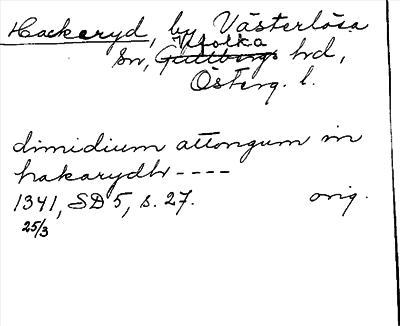 Hackeryd, by Västerlösa
Vifolka
sn, Gullbergs hrd,
Österg. l.
dimidium attongum in
hakarydh ----
1341, SD 5, s. 27. orig.
25/3